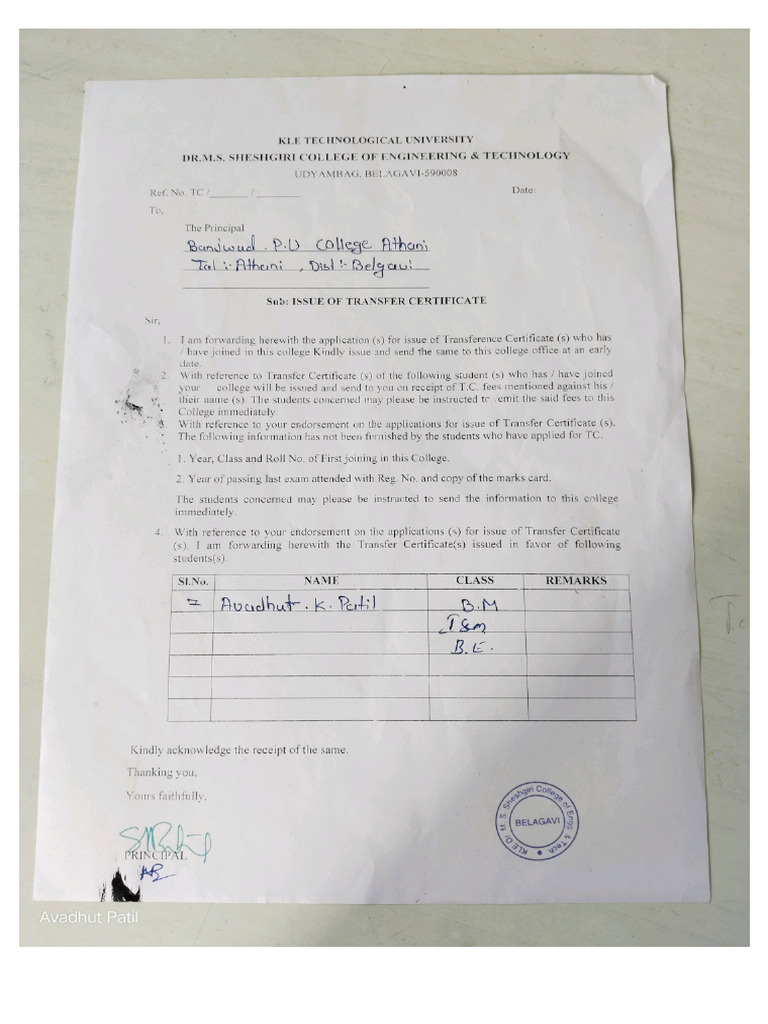 KLE TECHNOLOGICAL UNIVERSITY
DR.M.S. SHESHGIRI COLLEGE OF ENGINEERING & TECHNOLOGY
UDYAMBAG, BELAGAVI-590008
Ref. No. TC /_______ / ________ Date:
To,
The Principal
Banjwad . P.U College Athani
Tal :- Athani , Dist :- Belgavi
Sub: ISSUE OF TRANSFER CERTIFICATE
Sir,
1. I am forwarding herewith the application (s) for issue of Transference Certificate (s) who has
/ have joined in this college Kindly issue and send the same to this college office at an early
date.
2. With reference to Transfer Certificate (s) of the following student (s) who has / have joined
your college will be issued and send to you on receipt of T.C. fees mentioned against his /
their name (s). The students concerned may please be instructed to remit the said fees to this
College immediately.
3. With reference to your endorsement on the applications for issue of Transfer Certificate (s).
The following information has not been furnished by the students who have applied for TC.
1. Year, Class and Roll No. of First joining in this College.
2. Year of passing last exam attended with Reg. No. and copy of the marks card.
The students concerned may please be instructed to send the information to this college
immediately.
4. With reference to your endorsement on the applications (s) for issue of Transfer Certificate
(s). I am forwarding herewith the Transfer Certificate(s) issued in favor of following
students(s).
Sl.No. NAME CLASS REMARKS
Avadhut . K. Patil B.M
I Sem
B.E.
Kindly acknowledge the receipt of the same.
Thanking you,
Yours faithfully,
PRINCIPAL
KLE Dr. M. S. Sheshgiri College of Engg & Tech
BELAGAVI
Avadhut Patil